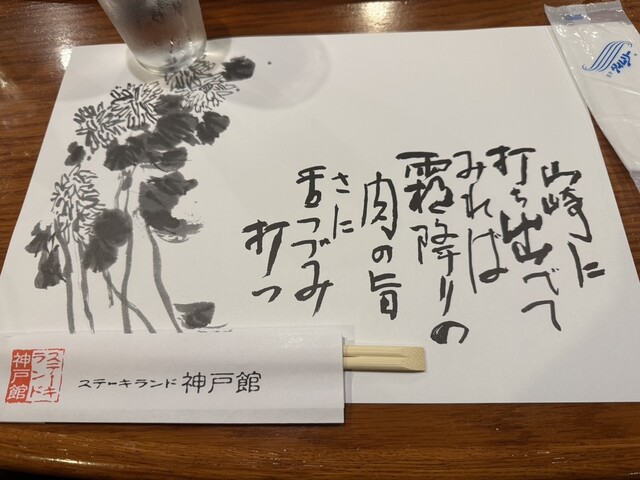 山崎に
打ち出でて
みれば
霜降りの
肉の旨
さに
舌つづみ
打つ
ステーキ
ランド
神戸館
ステーキランド 神戸館